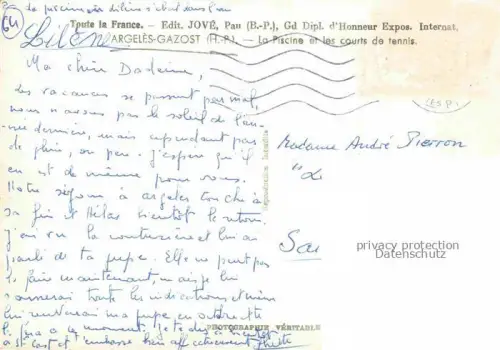 de piscine
64
Toute la France. — Edit. JOVÉ, Pau (B.-P.), Gd Dipl. d'Honneur Expos. Internat.
ARGELÈS-GAZOST (H.-P.). — La Piscine et les courts de tennis.
Ma chère Dadeine,
des vacances se passent pas mal,
nous n'avons pas le soleil de l'an-
née dernière, mais cependant pas
de pluie, ou peu. J'espère qu'il
en est de même pour vous.
Notre séjour à argeles touche à
sa fin et hélas bientôt le retour.
J'ai vu la couturière et lui ai
parlé de ta jupe. Elle ne peut pas
le faire maintenant, mais je lui
donnerai toute les indications et même
lui remettrai ma jupe, en octobre elle
le fera à ce moment. Je te dis à bientôt
à St Cast et t'embrasse bien affectueusement
Madame André Pierron
Reproduction Interdite
PHOTOGRAPHIE VÉRITABLE
privacy protection
Datenschutz